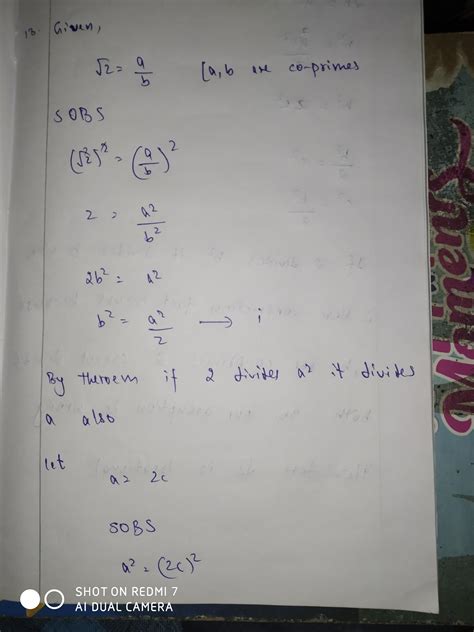 13. Given,
√2 = a/b [a, b are co-primes
SOBS
(√2)² = (a/b)²
2 = a²/b²
2b² = a²
b² = a²/2 → i
By theroem if 2 divides a² it divides
a also
let
a = 2c
SOBS
a² = (2c)²
Moments
SHOT ON REDMI 7
AI DUAL CAMERA